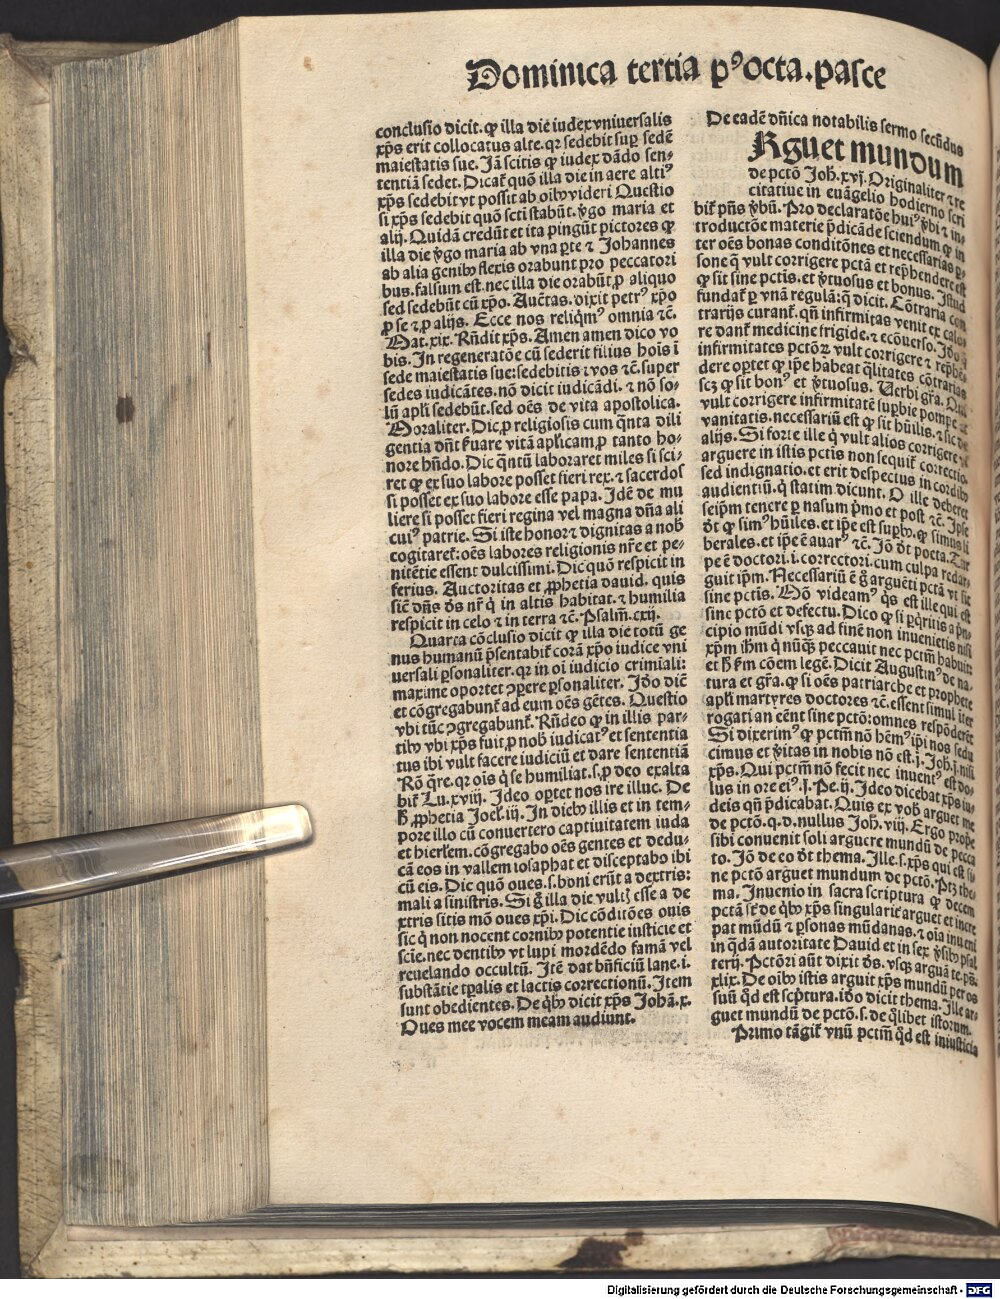 Dominica tertia pꝰocta.pasce
conclusio dicit.ꝙ illa die iudex vniuersalis
xp̄s erit collocatus alte.qꝛ sedebit suꝑ sedē
maiestatis sue. Jā scitis ꝙ iudex dādo sen-
tentiā sedet. Dicat᷑ quō illa die in aere altiꝰ
xp̄s sedebit vt possit ab oīb᷒ videri Questio
si xp̄s sedebit quō scti stabūt. v̓go maria et
alij. Quidā credūt et ita pingūt pictores ꝙ
illa die v̓go maria ab vna ꝑte ⁊ Johannes
ab alia genib᷒ flexis orabunt pro peccatori
bus.falsum est.nec illa die orabūt ꝓ aliquo
sed sedebūt cū xp̄o. Auc̄tas. dixit petrꝰ xp̄o
ꝓ se ⁊ ꝓ alijs. Ecce nos reliqm̄ꝰ omnia ⁊c̄.
Mat.xix. Rn̄dit xp̄s. Amen amen dico vo
bis. In regeneratōe cū sederit filius hoīs ī
sede maiestatis sue:sedebitis ⁊ vos ⁊c̄.super
sedes iudicātes. nō dicit iudicādi. ⁊ nō so-
lū apl̄i sedebūt.sed oēs de vita apostolica.
Moraliter. Dic.ꝓ religiosis cum q̄nta dili
gentia dn̄t ẜuare vitā apl̄icam.ꝓ tanto ho-
nore hn̄do. Dic q̄ntū laboraret miles si sci-
ret ꝙ ex suo labore posset fieri rex. ⁊ sacerdos
si posset ex suo labore esse papa. Idē de mu
liere si posset fieri regina vel magna dn̄a ali
cuiꝰ patrie. Si iste honor ⁊ dignitas a nob᷒
cogitaret᷑:oēs labores religionis nr̄e et pe-
nitētie essent dulcissimi. Dic quō respicit in
ferius. Auctoritas et ꝓphetia dauid. quis
sic̄ dn̄s ds̄ nr̄ q̇ in altis habitat. ⁊ humilia
respicit in celo ⁊ in terra ⁊c̄. Psalm̄.cxij.
Quarta cōclusio dicit ꝙ illa die totū ge
nus humanū p̄sentabit᷑ corā xp̄o iudice vni
uersali ꝑsonaliter.qꝛ in oī iudicio crimiali:
maxime oportet ꝯꝑere ꝑsonaliter. Jdō diē
et cōgregabunt᷑ ad eum oēs gētes. Questio
vbi tūc ꝯgregabunt᷑. Rn̄deo ꝙ in illis par-
tib᷒ vbi xp̄s fuit ꝓ nob᷒ iudicatꝰ et sententia
tus ibi vult facere iudiciū et dare sententiā
Rō q̄re. qꝛ oīs q̇ se humiliat.s.ꝓ deo exalta
bit᷑ Lu.xviij. Ideo oꝑtet nos ire illuc. De
h̄ ꝓphetia Joel̄.iij. In dieb᷒ illis et in tem-
pore illo cū conuertero captiuitatem iuda
et hierl̄em. cōgregabo oēs gentes et dedu-
cā eos in vallem iosaphat et disceptabo ibi
cū eis. Dic quō oues.s.boni erūt a dextris:
mali a sinistris. Si g̊ illa die vultꝭ esse a de
xtris sitis mō oues xp̄i. Dic cōditōes ouis
sic q̇ non nocent cornib᷒ potentie iusticie et
scīe.nec dentib᷒ vt lupi mordēdo famā vel
reuelando occultū. Itē dat bn̄ficiū lane.i.
substātie tꝑalis et lactis correctionū. Item
sunt obedientes. De qb᷒ dicit xp̄s Johā.x.
Oues mee vocem meam audiunt.
De eadē dn̄ica notabilis sermo secūdus
Arguet mundum
de pctō Joh̄.xvj. Originaliter ⁊ re
citatiue in euāgelio hodierno scri
bit᷑ pn̄s v̓bū. Pro declaratōe huiꝰ v̓bi ⁊ in-
troductōe materie p̄dicāde sciendum ꝙ in
ter oēs bonas conditōnes et necessarias ꝑ-
sone q̄ vult corrigere pctā et rep̄hendere est
ꝙ sit sine pctīs. et v̓tuosus et bonus. Istud
fundat᷑ ꝑ vnā regulā:q̄ dicit. Cōtraria con
trarijs curant᷑. qn̄ infirmitas venit ex calo-
re dant᷑ medicine frigide. ⁊ ecōuerso. Jdō q̇
infirmitates pctōꝝ vult corrigere ⁊ rep̄he-
dere oꝑtet ꝙ ip̄e habeat q̄litates cōtrarias
scꝫ ꝙ sit bonꝰ et v̓tuosus. Uerbi gr̄a. Qui
vult corrigere infirmitatē suꝑbie pompe et
vanitatis. necessariū est ꝙ sit hūilis. ⁊ sic de
alijs. Si forte ille q̇ vult alios corrigere vl̄
arguere in istis pctīs non sequit᷑ correctio.
sed indignatio. et erit despectus in cordib᷒
audientiū.q̇ statim dicunt. O ille deberet
seip̄m tenere ꝑ nasum p̄mo et post ⁊c̄. Ip̄se
dt̄ ꝙ simꝰ hūiles. et ip̄e est suꝑb᷒. ꝙ simus li
berales. et ip̄e ē auarꝰ ⁊c̄. Jō dt̄ poeta. Tur
pe ē doctori.i.correctori.cum culpa redar-
guit ip̄m. Necessariū ē g̊ arguēti pctā vt sit
sine pctīs. Mō videamꝰ q̇s est ille qui est
sine pctō et defectu. Dico ꝙ si ꝑq̇ritis a p̄n-
cipio mūdi vsqꝫ ad finē non inuenietis nisi
xp̄m ih̄m q̇ nūqꝫ peccauit nec pctm̄ habuit:
et h̄ ẜm cōem legē. Dicit Augustinꝰ de na-
tura et gr̄a. ꝙ si oēs patriarche et prophete
apl̄i martyres doctores ⁊c̄. essent simul iter
rogati an eēnt sine pctō:omnes respōderēt
Si dixerimꝰ ꝙ pctm̄ nō hēmꝰ ip̄i nos sedu
cimus et v̓itas in nobis nō est.j. Joh̄.j. nisi
xp̄s. Qui pctm̄ nō fecit nec inuentꝰ est do-
lus in ore eiꝰ.j. Pe.ij. Ideo dicebat xp̄s iu-
deis qn̄ p̄dicabat. Quis ex vob᷒ arguet me
de pctō.q.d.nullus Joh̄.viij. Ergo prop̄e
sibi conuenit soli arguere mundū de pecca
to. Jō de eo dt̄ thema. Ille.s.xp̄s qui est si
ne pctō arguet mundum de pctō. Ptꝫ the-
ma. Inuenio in sacra scriptura ꝙ decem
pctā st̄ de qb᷒ xp̄s singularit᷑ arguet et incre
pat mūdū ⁊ ꝑsonas mūdanas. ⁊ oīa inueni
in qdā autoritate Dauid et in sex v̓sib᷒ psal
terij. Pctōri aūt dixit ds̄. vsqꝫ arguā te.ps̄.
xlix. De oīb᷒ istis arguit xp̄s mundū per os
suū qd̄ est scp̄tura. idō dicit thema. Ille ar-
guet mundū de pctō.s.de q̄libet istorum.
Primo tāgit᷑ vnū pctm̄ qd̄ est iniusticia
Digitalisierung gefördert durch die Deutsche Forschungsgemeinschaft - DFG